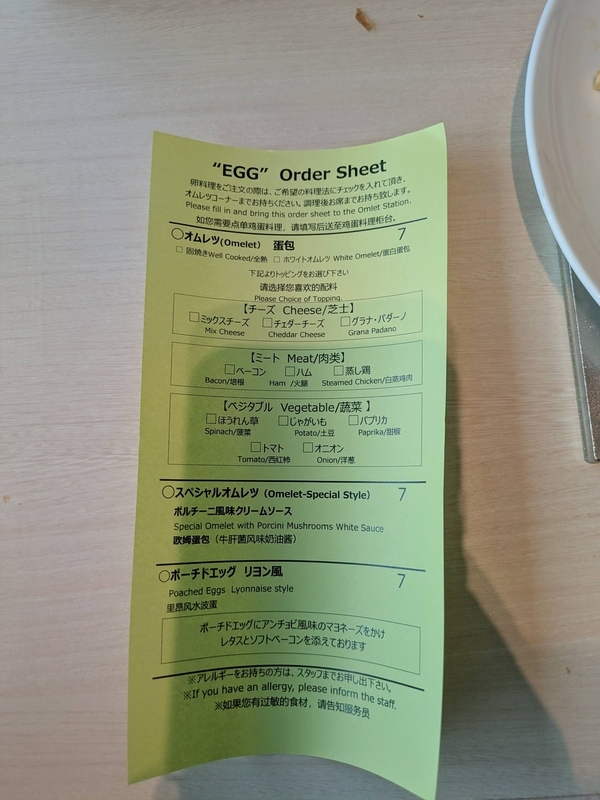 “EGG” Order Sheet
卵料理をご注文の際は、ご希望の料理法にチェックを入れて頂き、
オムレツコーナーまでお持ちください。調理後お席までお持ち致します。
Please fill in and bring this order sheet to the Omlet Station.
如您需要点单鸡蛋料理，请填写后送至鸡蛋料理柜台。
○オムレツ(Omelet) 蛋包 7
□ 固焼きWell Cooked/全熟 □ ホワイトオムレツ White Omelet/蛋白蛋包
下記よりトッピングをお選び下さい
请选择您喜欢的配料
Please Choice of Topping.
【チーズ Cheese/芝士】
□ミックスチーズ □チェダーチーズ □グラナ・パダーノ
Mix Cheese Cheddar Cheese Grana Padano
【ミート Meat/肉类】
□ベーコン □ハム □蒸し鶏
Bacon/培根 Ham /火腿 Steamed Chicken/白蒸鸡肉
【ベジタブル Vegetable/蔬菜 】
□ほうれん草 □じゃがいも □パプリカ
Spinach/菠菜 Potato/土豆 Paprika/甜椒
□トマト □オニオン
Tomato/西红柿 Onion/洋葱
○スペシャルオムレツ (Omelet-Special Style) 7
ポルチーニ風味クリームソース
Special Omelet with Porcini Mushrooms White Sauce
欧姆蛋包（牛肝菌风味奶油酱）
○ポーチドエッグ リヨン風 7
Poached Eggs Lyonnaise style
里昂风水波蛋
ポーチドエッグにアンチョビ風味のマヨネーズをかけ
レタスとソフトベーコンを添えております
※アレルギーをお持ちの方は、スタッフまでお申し出下さい。
※If you have an allergy, please inform the staff.
※如果您有过敏的食材，请告知服务员